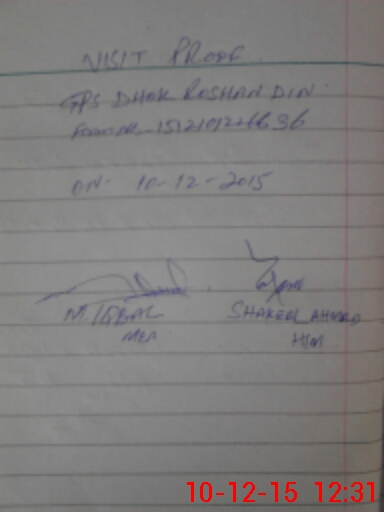 VISIT PROOF.
GPS DHOK ROSHAN DIN.
ON. 10-12-2015
M. IQBAL SHAKEEL AHMAD
MEA HTM
10-12-15 12:31